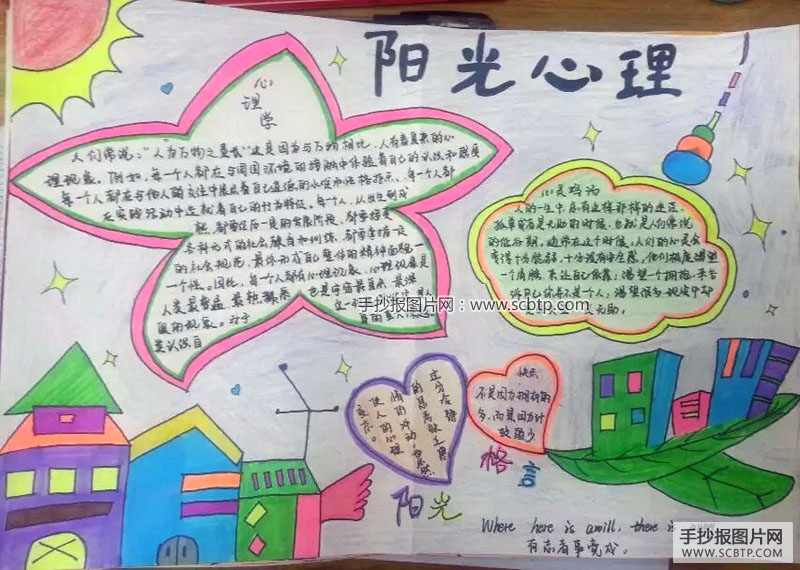 阳光心理
心
理
学
人们常说："人为万物之灵长"这是因为与万物相比，人有着复杂的心
理现象。例如，每一个人都在与周围环境的接触中体验着自己的认识和感受
每一个人都在与他人的交往中展示着自己道德的水准和性格特点，每一个人都
在实践活动中造就着自己的行为特征，每个人，从出生到成
熟，都要经历一定的发展阶段，都要接受
各种形式的社会教育和训练，都要掌握一定
的社会规范，最终形成自己整体的精神面貌一
一个性。因此，每一个人都有心理现象，心理现象是
人类最普遍、最熟悉
也是宇宙最复杂、最深
奥的现象。对于
类认识自
心灵鸡汤
人的一生中总有这样那样的逆运，
孤单或者是无助的时候，也就是人们常说
的低谷期，通常在这个时候，人们的心灵会
变得十分脆弱，十分没有安全感，他们极度渴望
一个肩膀，来让自己依靠；渴望一个拥抱，来告
诉自己你并不是一个人；渴望
无助。
手抄报图片网：www.scbtp.com
过分冷静
的思考，缺乏感
情的冲动，也必然
使人的心理
变态。
快乐
不是因为拥有的
多，而是因为计
较的少
格言
阳光
Where here is a will, there is
有志者事竟成。
手抄报图片网
WWW.SCBTP.COM